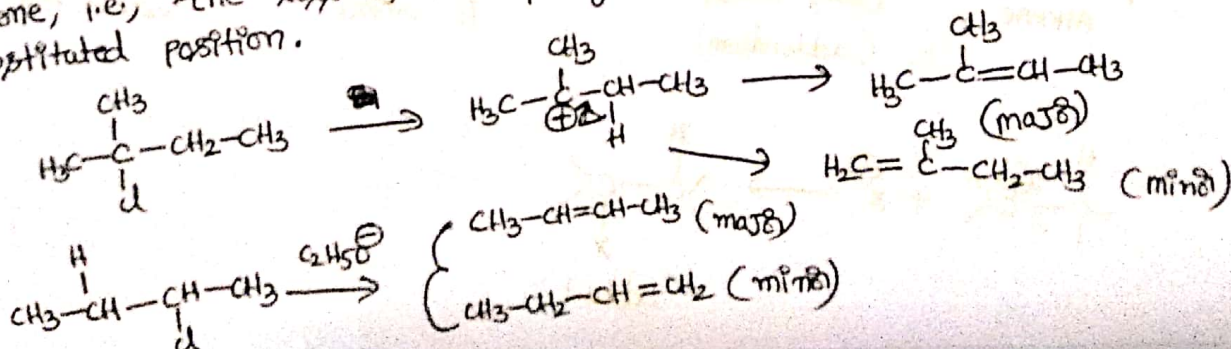 ome, i.e, the
stituted position.
CH3
H3C-C-CH2-CH3
Cl
CH3
H3C-C-CH-CH3
⊕ H
CH3
H3C-C=CH-CH3
(major)
CH3
H2C=C-CH2-CH3 (minor)
H
CH3-CH-CH-CH3
Cl
C2H5O⊖
CH3-CH=CH-CH3 (major)
CH3-CH2-CH=CH2 (minor)